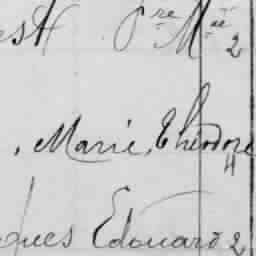 est Pre Mae 2
, Marie, Théodore
4
ques Edouard 2